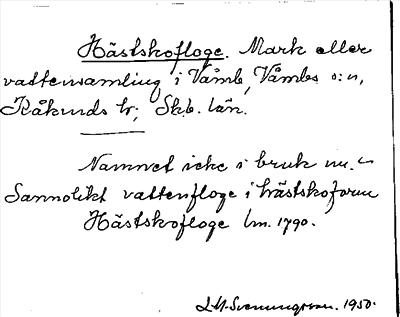 Hästskofloge. Mark eller
vattensamling i Våmb, Våmbs s:n,
Kåkinds hr; Skb. län.
Namnet icke i bruk nu.
Sannolikt vattenfloge i hästskoform
Hästskofloge lm. 1790.
L-M. Svenungsson. 1950.